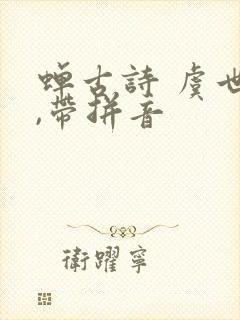 蟬古詩 虞世
,帶拼音
衛躍寧